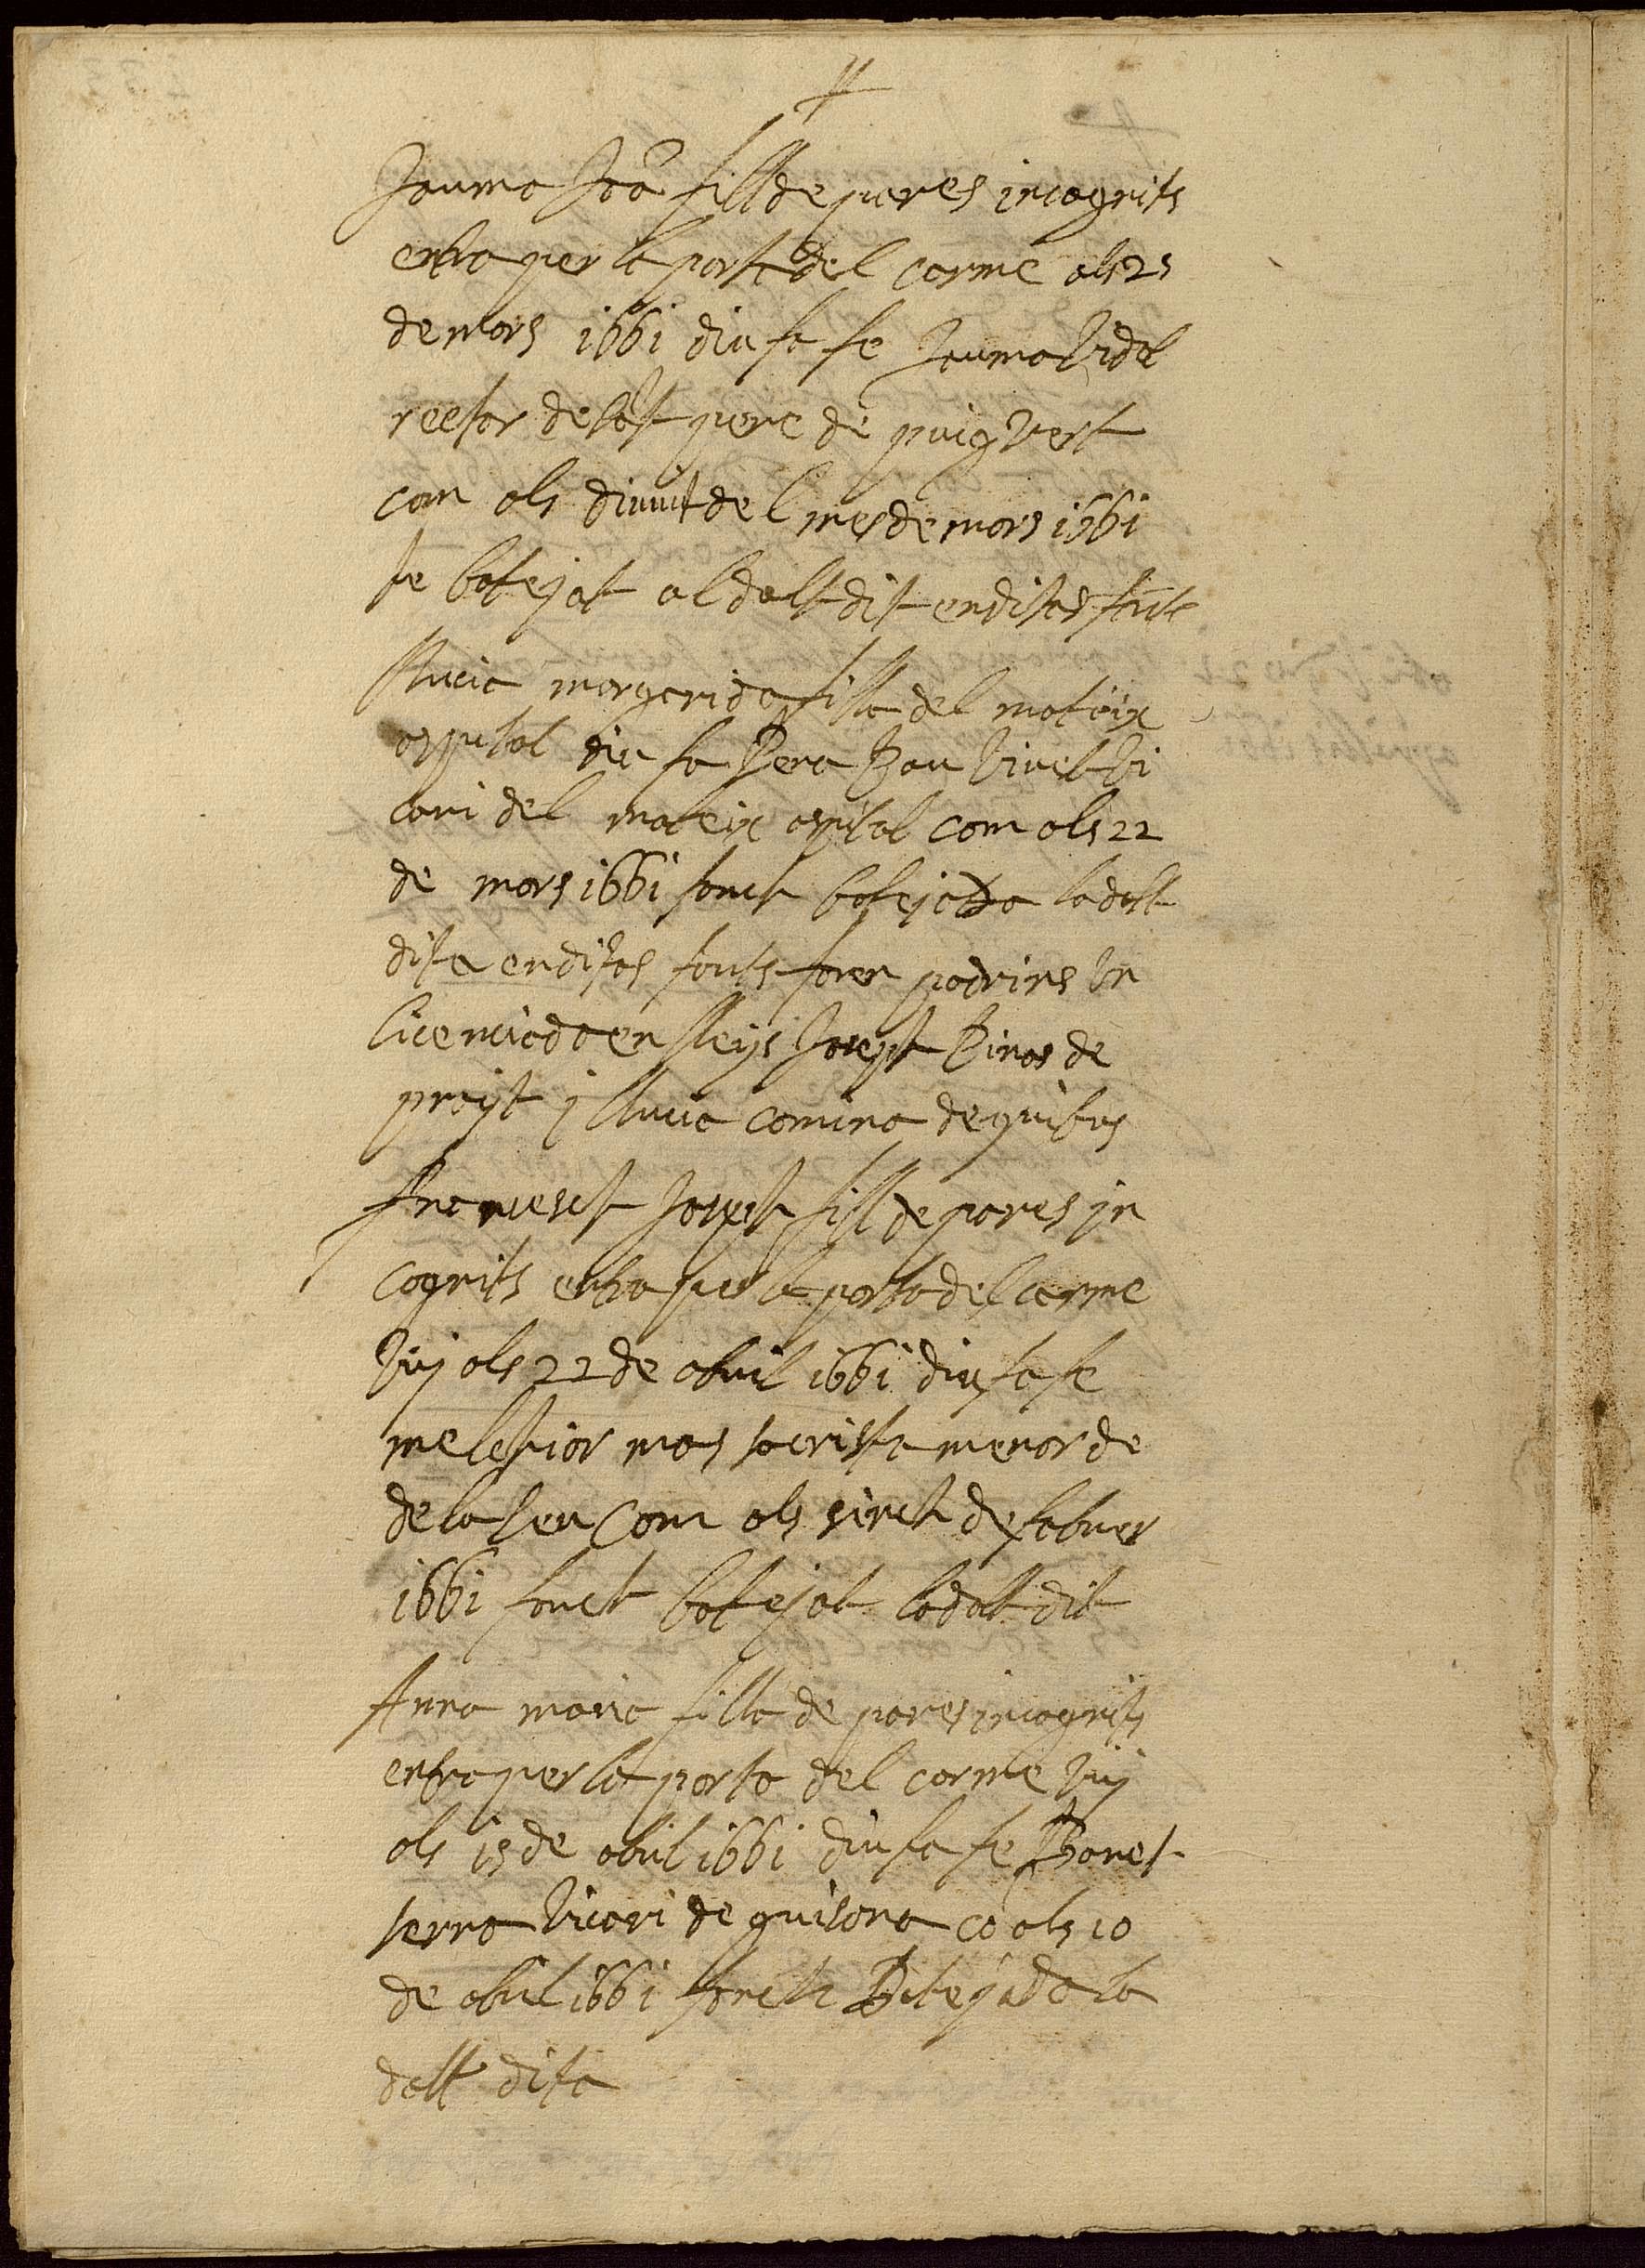 Jauma Joã fill de pares incognits
entra per la porta del carme als 25
de mars 1661 diu fa fe Jauma Vidal
rector de Sãt pere de puigvert
com als divuit del mes de mars 1661
fe batejat al dalt dit en ditas
Llucia margarida filla del mateix
ospital diu fa Pera Pau Vi
cari del mateix ospital com als 22
de mars 1661 fonch batejada la dalt
dita en ditas fonts foren padrins Un
licenciado en lleys Joseph de
prait i Llucia comuna de quibus
Francesch Joseph fill de pares in
cognits entra per la porta del carme
Vuy als 22 de abril 1661 diu fa fe
melchior mas sacrista menor de
de la Seu Com als sinch de fabrer
1661 fonch batejat lo dalt dit
Anna maria filla de pares incognits
entra per la porta del carme Vuy
als 15 de abril 1661 diu fa fe
serra Vicari de guisona cõ als 10
de abril 1661 fonch Batejada la
dalt dita